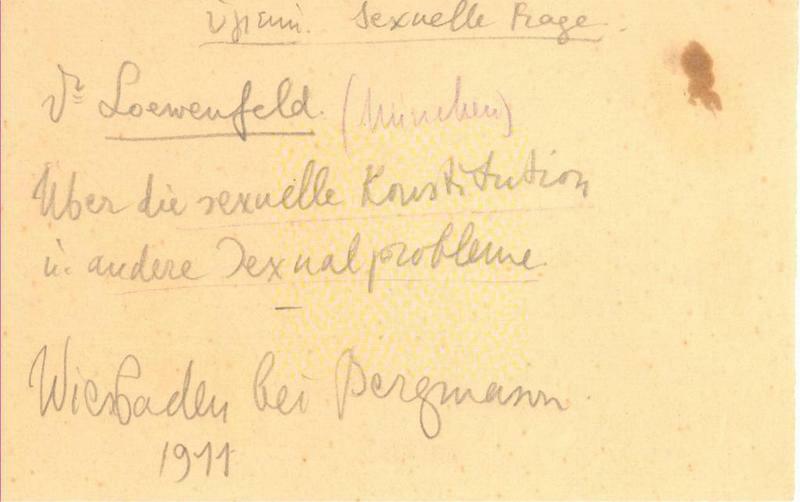 Sexuelle Frage.
Dr Loewenfeld. (München)
Über die sexuelle Konstitution
u. andere Sexualprobleme
Wiesbaden bei Bergmann
1911